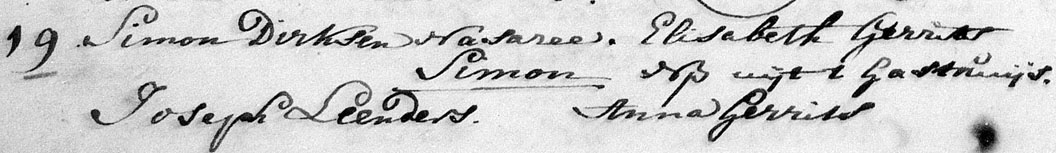 19 Simon Dirksen Nasaree. Elisabeth Gerrits
Simon NB uijt t Gasthuijs.
Joseph Leenders. Anna Gerrits